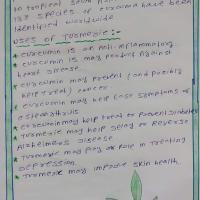 In tropical
133 species of curcuma have been
identified worldwide
USES OF TURMERIC :-
* curcumin is an anti-inflammatory.
* curcumin is may protect Against
heart disease.
* curcumin may prevent (and possibly
help treat) cancer.
* curcumin may help ease symptoms of
osteoarthritis
* curcumin may help treat or prevent Diabetes
* Turmeric may help delay or Reverse
Alzheimer's Disease
* Turmeric may play a Role in Treating
Depression.
* Turmeric may improve skin health.